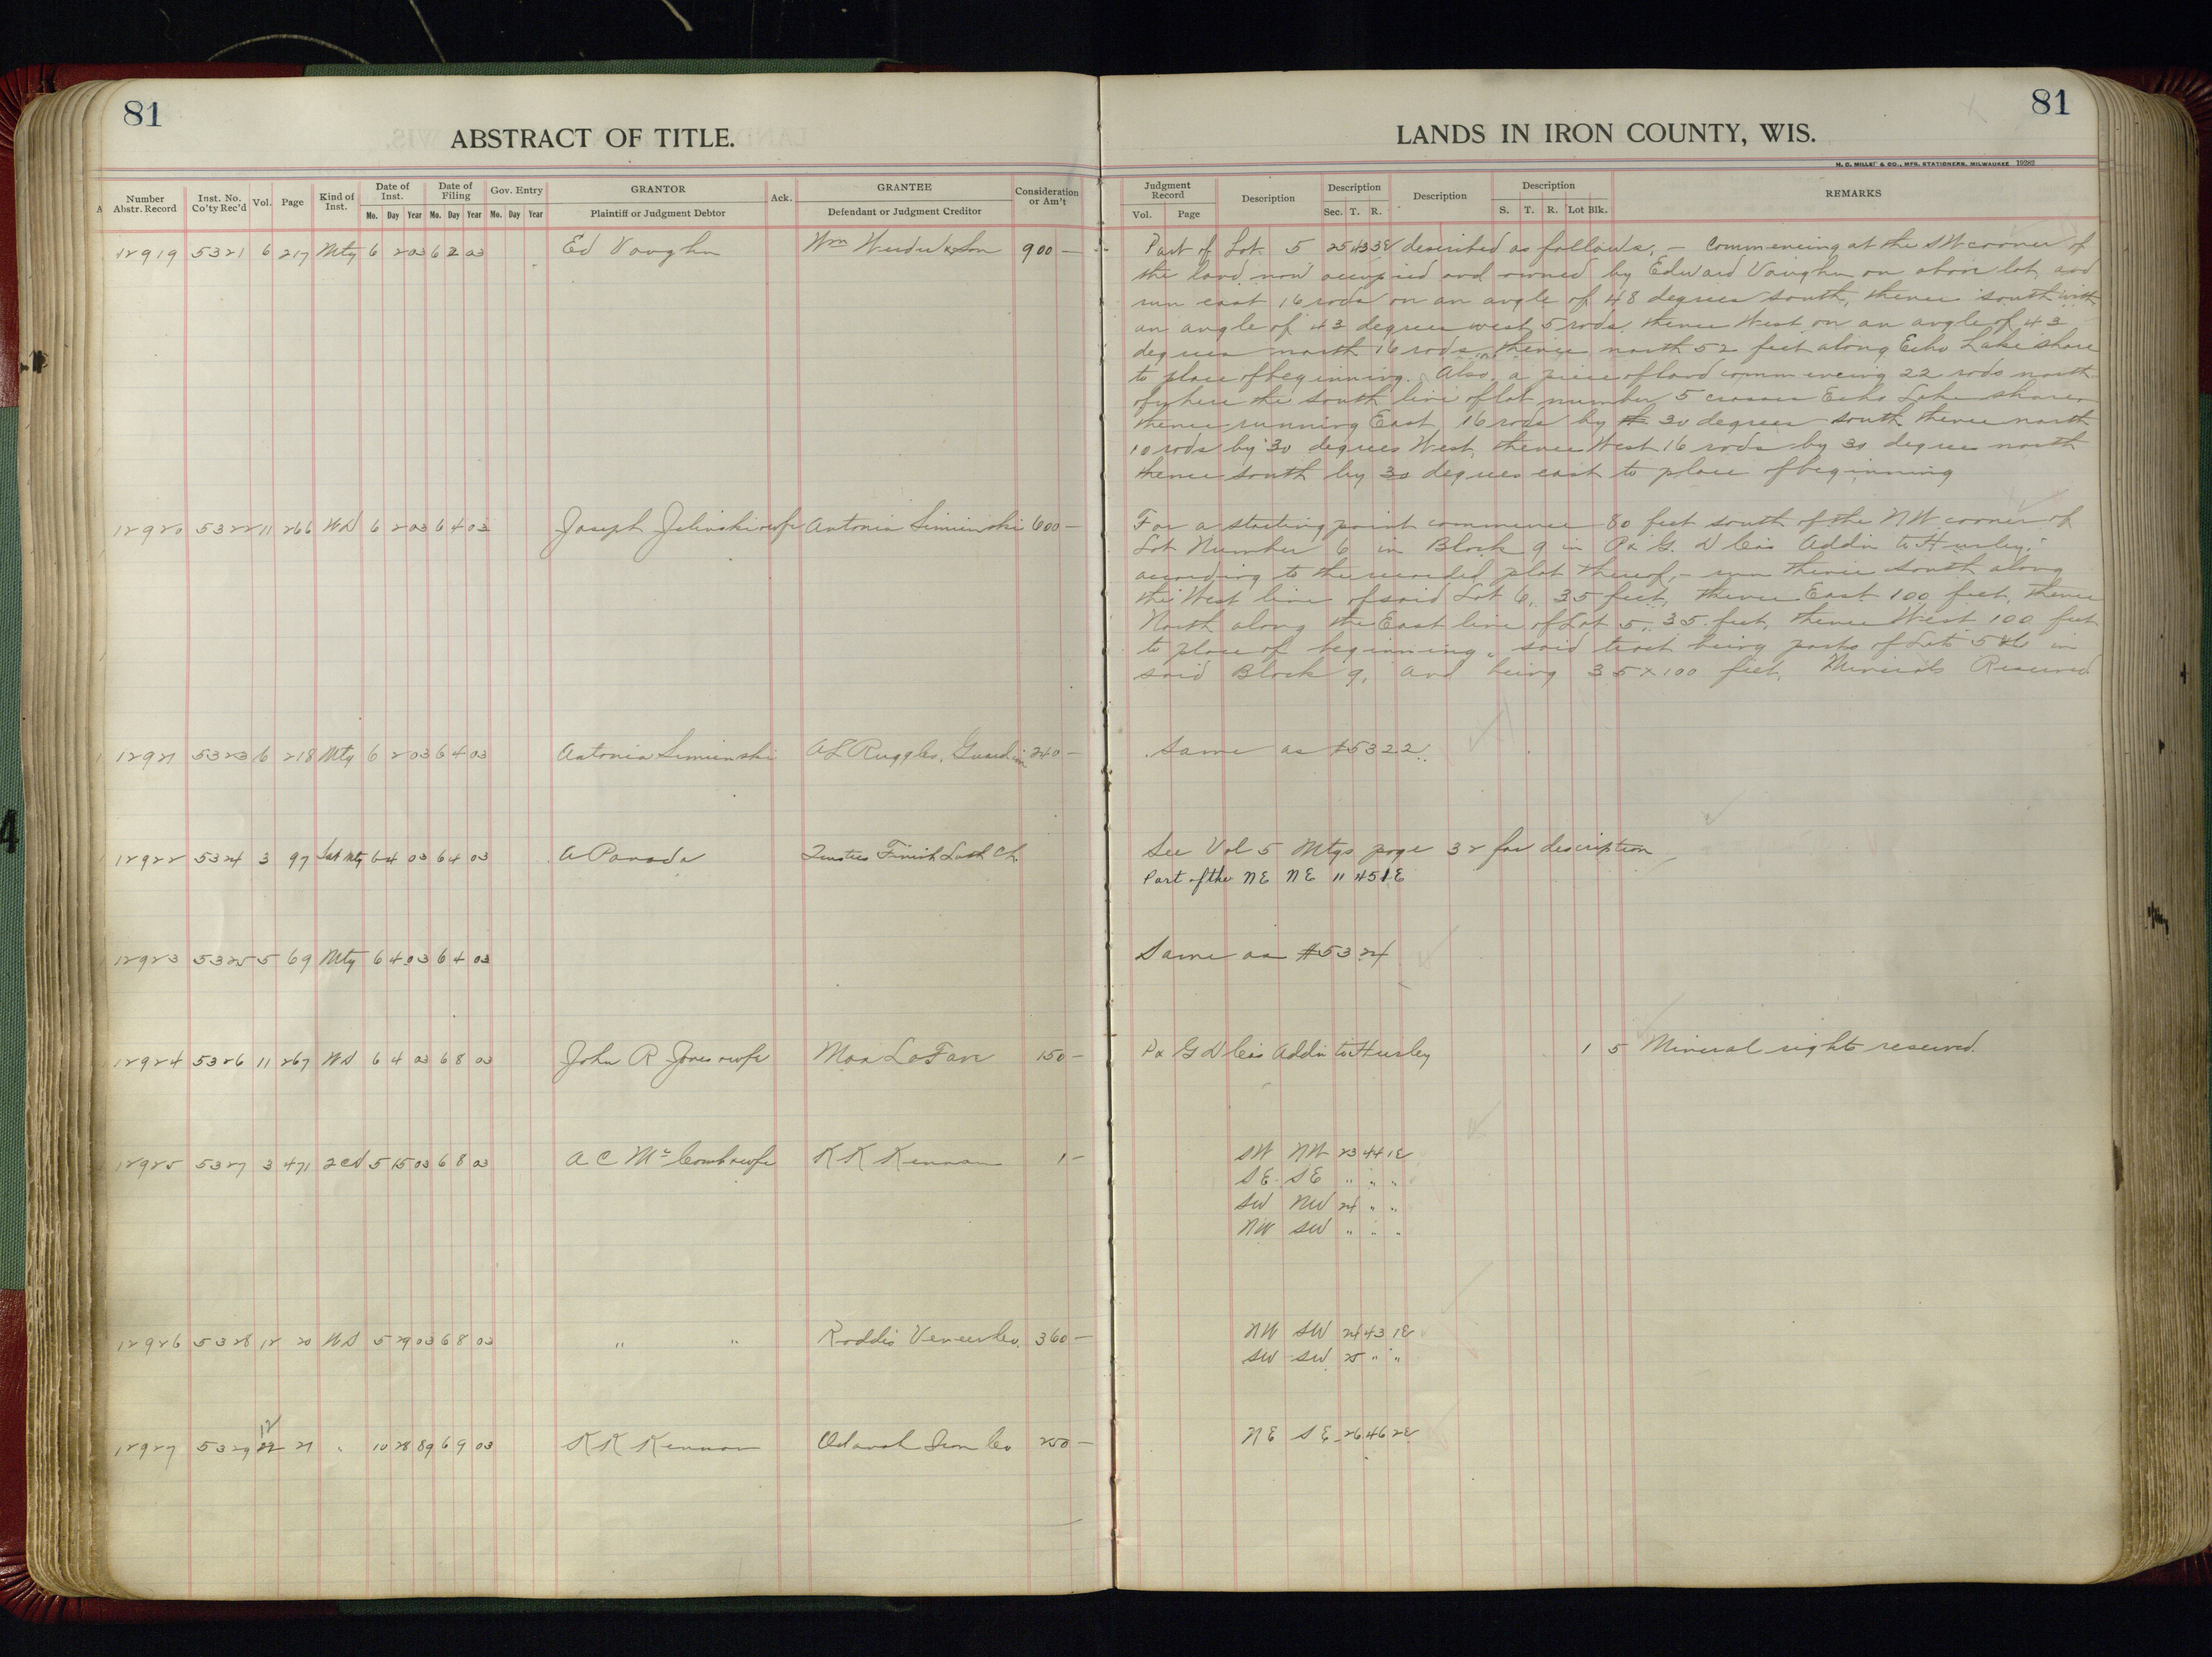 81
ABSTRACT OF TITLE.
Number Abstr. Record Inst. No. Co'ty Rec'd Vol. Page Kind of Inst. Date of Inst. Mo. Day Year Date of Filing Mo. Day Year Gov. Entry Mo. Day Year GRANTOR Plaintiff or Judgment Debtor Ack. GRANTEE Defendant or Judgment Creditor Consideration or Am't
12919 5321 6 217 Mtg 6 2 03 6 2 03 Ed Vaughn Wm & Son 900 —
12920 5322 11 266 WD 6 2 03 6 4 03 Joseph Jelinski & wife Antonia Simienski 600 —
12921 5323 6 218 Mtg 6 2 03 6 4 03 Antonia Simienski A L Ruggles, Guardian 240 —
12922 5324 3 97 Sat Mtg 6 4 03 6 4 03 A Parada Trustees Finish Luth Ch
12923 5325 5 69 Mtg 6 4 03 6 4 03
12924 5326 11 267 WD 6 4 03 6 8 03 John R Jones & wife LaFave 150 —
12925 5327 3 471 2 cd 5 15 03 6 8 03 A C Mc Comb & wife K K Kennan 1 —
12926 5328 12 20 WD 5 29 03 6 8 03 " " Roddis Veneer Co. 360 —
12
12927 5329 22 21 " 10 28 89 6 9 03 K K Kennan Odanah Iron Co 250 —
81
LANDS IN IRON COUNTY, WIS.
H. C. MILLER & CO., MFG. STATIONERS, MILWAUKEE 19282
Judgment Record Vol. Page Description Description Sec. T. R. Description Description S. T. R. Lot Blk. REMARKS
Part of Lot 5 25 43 3E described as follows, — Commencing at the SW corner of
the land now occupied and owned by Edward Vaughn on above lot, and
run east 16 rods on an angle of 48 degrees south, thence south with
an angle of 43 degrees west 5 rods, thence West on an angle of 43
degrees north 16 rods, thence north 52 feet along Echo Lake shore
to place of beginning. Also, a piece of land commencing 22 rods north
of where the south line of lot number 5 crosses Echo Lake shore,
thence running East 16 rods by 30 degrees south thence north
10 rods by 30 degrees West, thence West 16 rods by 30 degrees north
thence south by 30 degrees east to place of beginning
For a starting point commence 80 feet south of the NW corner of
Lot Number 6 in Block 9 in P & G. D Co's Addn to Hurley,
according to the recorded plat thereof, — run thence south along
the West line of said Lot 6, 35 feet, thence East 100 feet, thence
North along the East line of Lot 5, 35 feet, thence West 100 feet
to place of beginning, said tract being parts of Lots 5 & 6 in
said Block 9, and being 35 x 100 feet, Minerals Reserved
Same as #5322.
See Vol 5 Mtgs page 32 for description
Part of the NE NE 11 45 1E
Same as #5324
P & G D Co's Addn to Hurley 1 5 Mineral rights reserved.
SW NW 23 44 1E
SE SE " " "
SW NW 24 " "
NW SW " " "
NW SW 24 43 1E
SW SW 25 " "
NE SE 26 46 2E